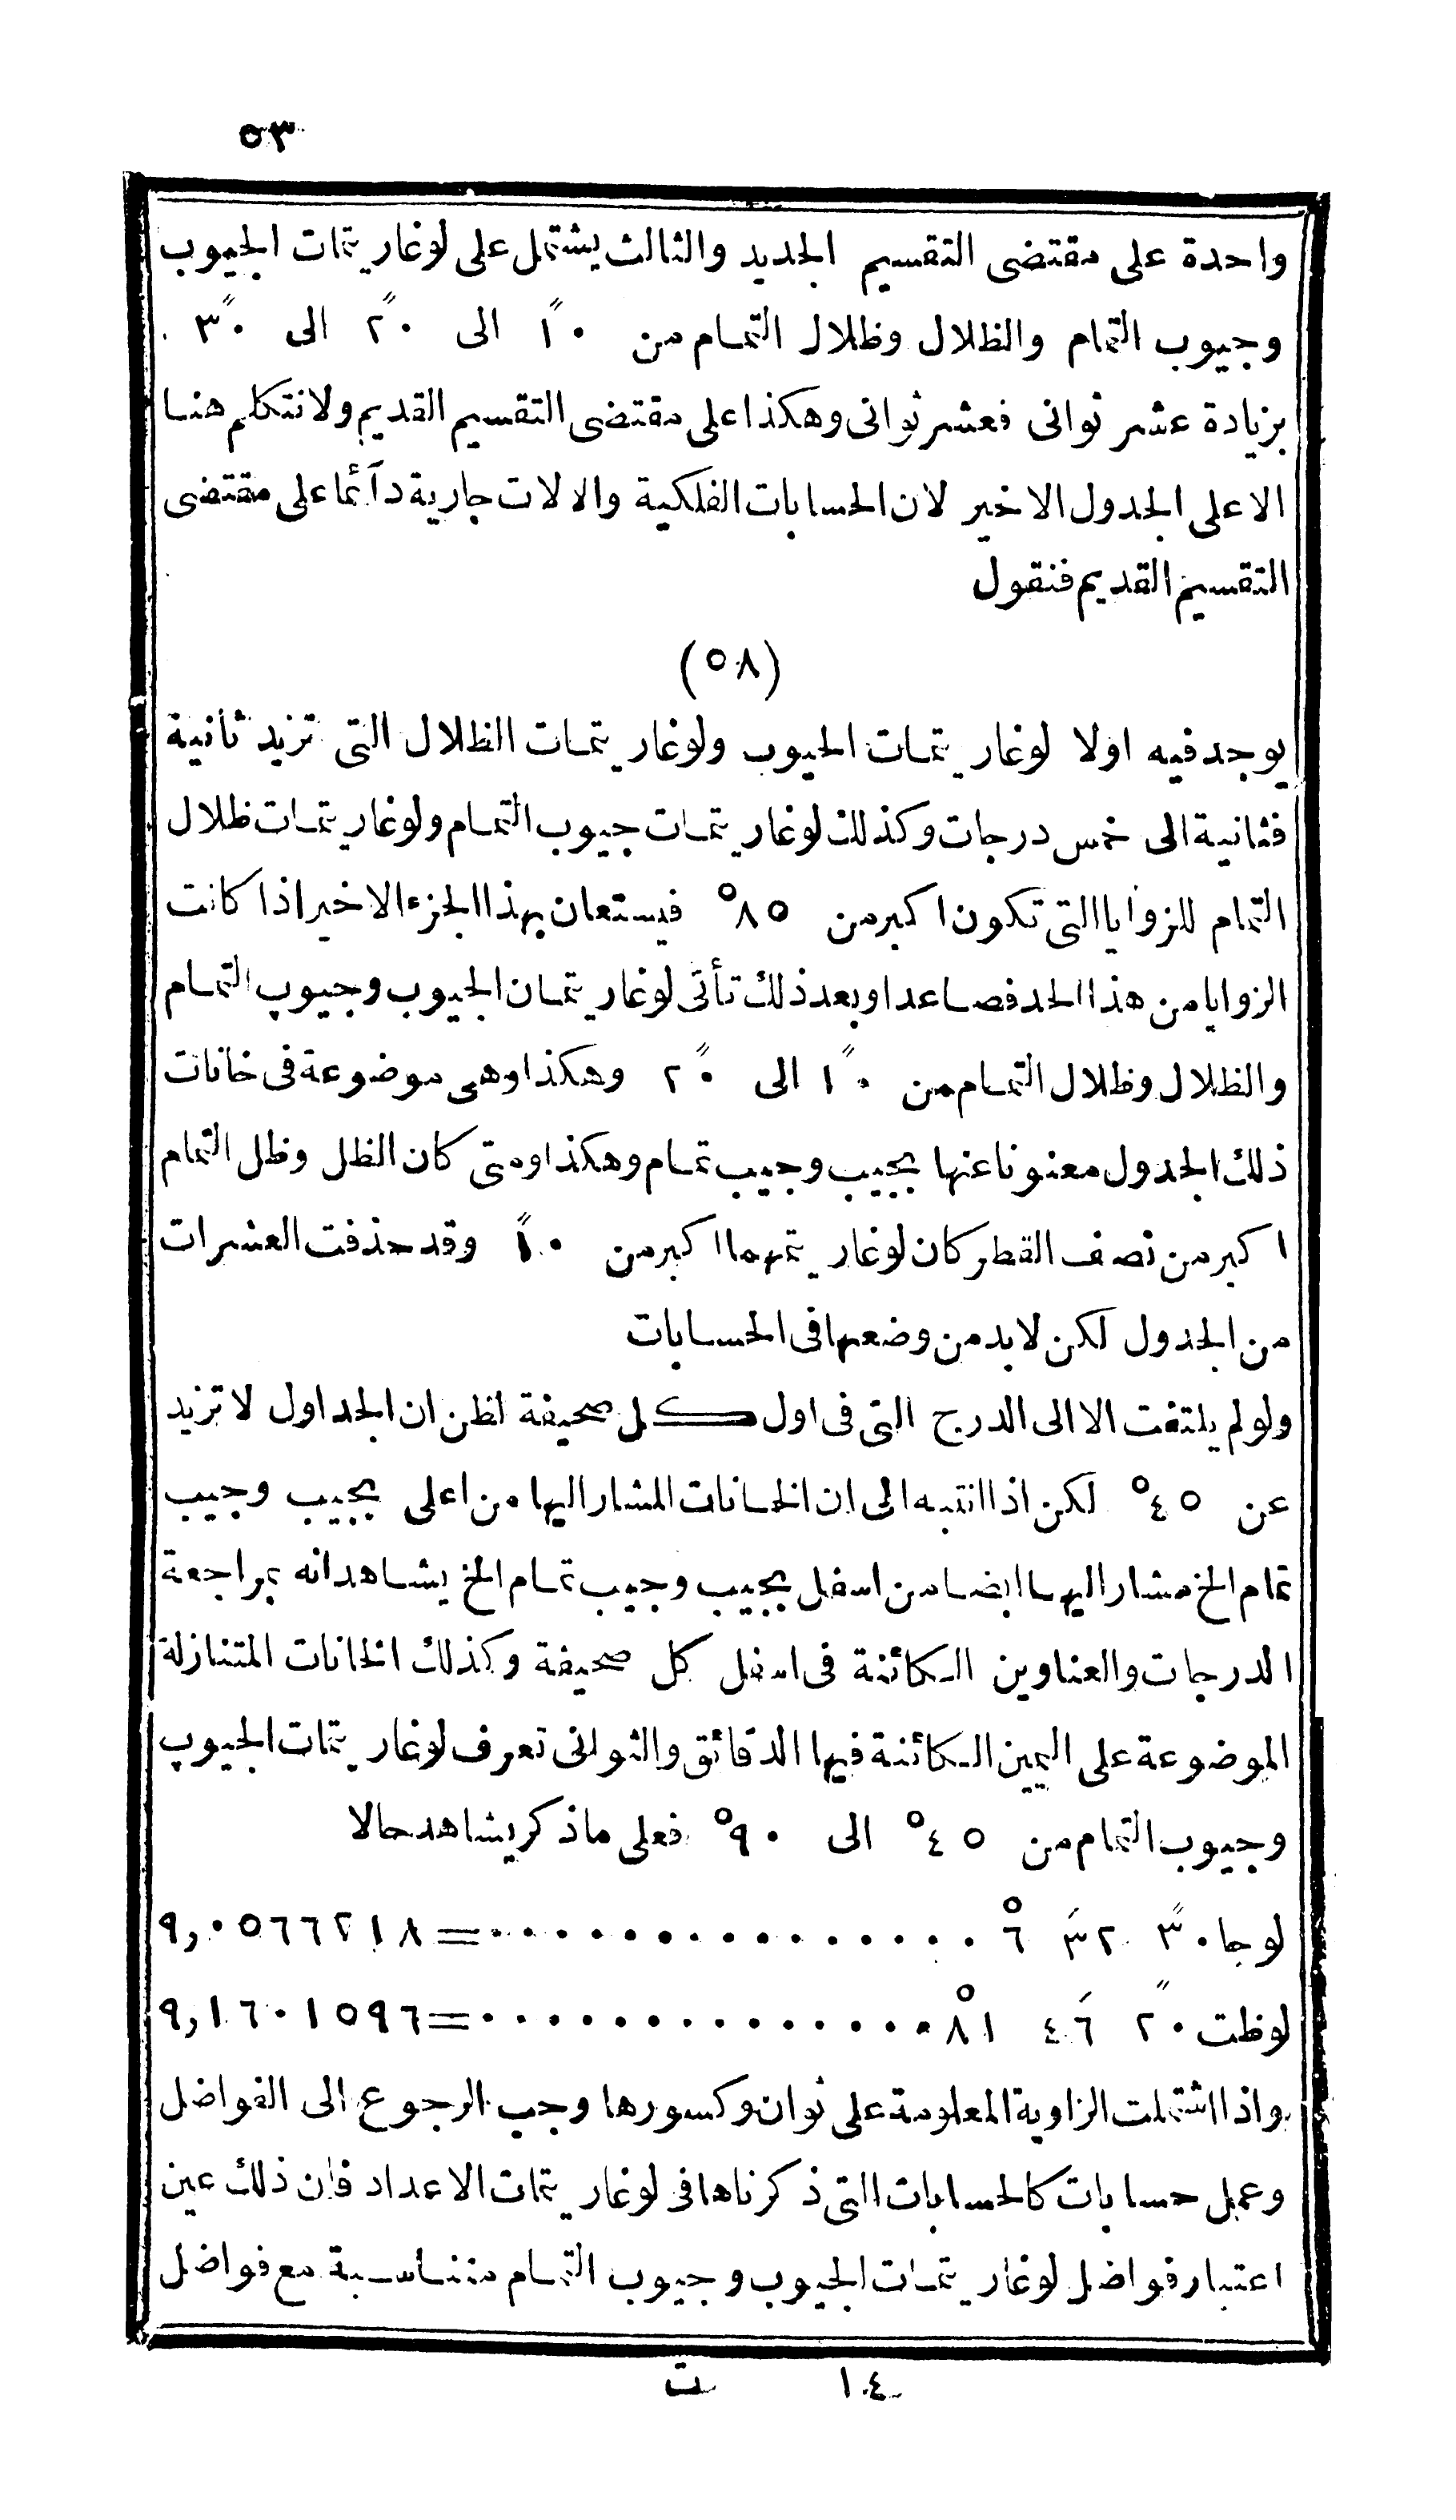 ٥٣
واحدة على مقتضى التقسيم الجديد والثالث يشتمل على لوغاريتمات الجيوب
وجيوب التمام والظلال وظلال التمام من ١٠ً الى ٢٠ً الى ٣٠ً
بزيادة عشر ثوانى فعشر ثوانى وهكذا على مقتضى التقسيم القديم ولا نتكلم هنا
الا على الجدول الاخير لان الحسابات الفلكية والالات جارية دآئما على مقتضى
التقسيم القديم فنقول
(٥٨)
يوجد فيه اولا لوغاريتمات الجيوب ولوغاريتمات الظلال التى تزيد ثانية
فثانية الى خمس درجات وكذلك لوغاريتمات جيوب التمام ولوغاريتمات ظلال
التمام للزوايا التى تكون اكبر من ٨٥° فيستعان بهذا الجزء الاخير اذا كانت
الزوايا من هذا الحد فصاعدا وبعد ذلك تأتى لوغاريتمات الجيوب وجيوب التمام
والظلال وظلال التمام من ١٠ً الى ٢٠ً وهكذا وهى موضوعة فى خانات
ذلك الجدول معنونا عنها بجيب وجيب تمام وهكذا ومتى كان الظل وظل التمام
اكبر من نصف القطر كان لوغاريتمهما اكبر من ١٠ً وقد حذفت العشرات
من الجدول لكن لا بد من وضعها فى الحسابات
ولو لم يلتفت الا الى الدرج التى فى اول كل صحيفة لظن ان الجداول لا تزيد
عن ٤٥° لكن اذا انتبه الى ان الخانات المشار اليها من اعلى بجيب وجيب
تمام الخ مشار اليها ايضا من اسفل بجيب وجيب تمام الخ يشاهد انه بمراجعة
الدرجات والعناوين الكائنة فى اسفل كل صحيفة وكذلك الخانات المتنازلة
الموضوعة على اليمين الكائنة فيها الدقائق والثوانى تعرف لوغاريتمات الجيوب
وجيوب التمام من ٤٥° الى ٩٠° فعلى ماذكر يشاهد حالا
لوجا ٣٠ً ٣٢َ ٦° ............... = ٩,٠٥٦٦٢١٨
لوظت ٢٠ً ٤٦َ ٨١° .............. = ٩,١٦٠١٥٩٦
واذا اشتملت الزاوية المعلومة على ثوان وكسورها وجب الرجوع الى الفواضل
وعمل حسابات كالحسابات التى ذكرناها فى لوغاريتمات الاعداد فان ذلك عين
اعتبار فواضل لوغاريتمات الجيوب وجيوب التمام متناسبة مع فواضل
١٤ ت